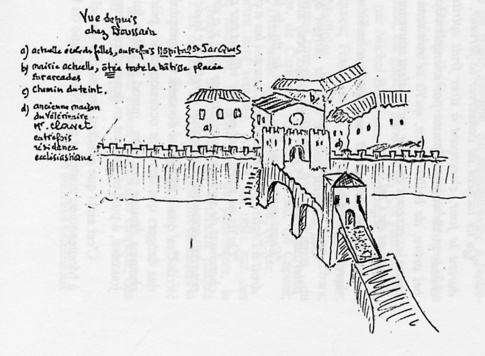 Vue depuis
chez Doussain
a) actuelle école de filles, autrefois Hôpital St Jacques
b) mairie actuelle, ôtée toute la bâtisse placée
sur arcades
c) Chemin du teint.
d) ancienne maison
du Vétérinaire
Mr. Clavet
autrefois
résidence
ecclésiastique
a)
b)
d)